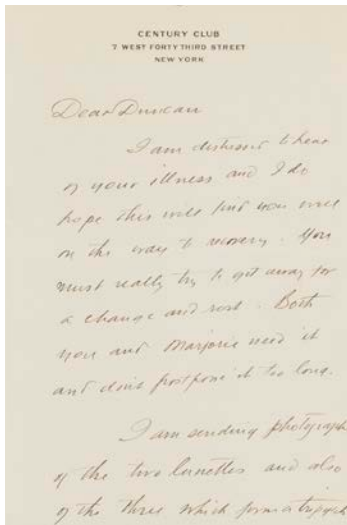 CENTURY CLUB
7 WEST FORTY THIRD STREET
NEW YORK
Dear Duncan
I am distressed to hear
of your illness and I do
hope this will find you well
on the way to recovery. You
must really try to get away for
a change and rest. Both
you and Marjorie need it
and don't postpone it too long.
I am sending photograph
of the two lunettes and also
of the three which form a triptych